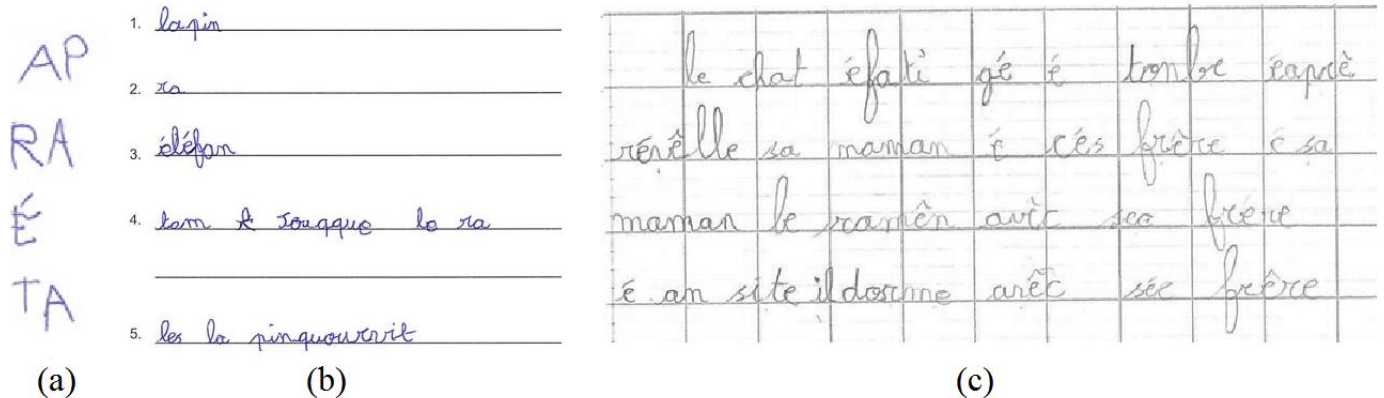 AP
RA
É
TA
(a)
1. lapin
2. ra
3. éléfan
4. tom le ra
5. les la pinquourrit
(b)
le chat éfati gé é tonbe éaprè
révêlle sa maman é cés frêre é sa
maman le ramên avêc frére
é an site il dorme avêc sée frêre
(c)